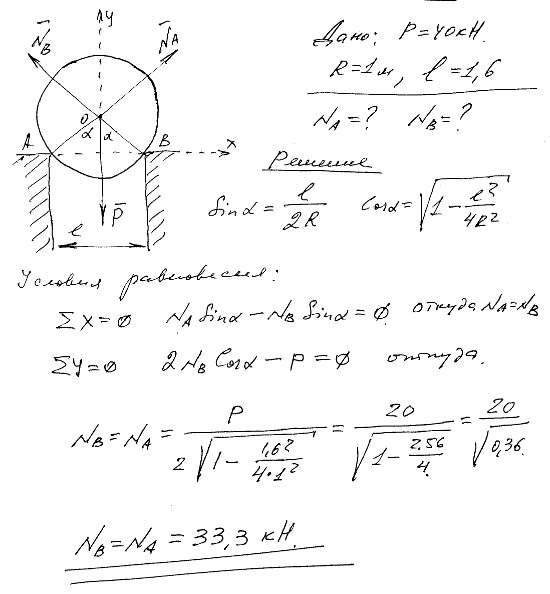 y
N̄_B N̄_A
Дано: P=40кН.
R=1м, ℓ=1,6
N_A=? N_B=?
O
α α
A B x
Решение
P̄
ℓ
Sinα = ℓ/2R Cosα = √(1 - ℓ²/4R²)
Условия равновесия:
ΣX=0 N_A Sinα - N_B Sinα = 0 откуда N_A=N_B
ΣY=0 2N_B Cosα - P = 0 откуда.
N_B = N_A = P/(2√(1 - 1,6²/4·1²)) = 20/√(1 - 2,56/4) = 20/√0,36.
N_B = N_A = 33,3 кН.